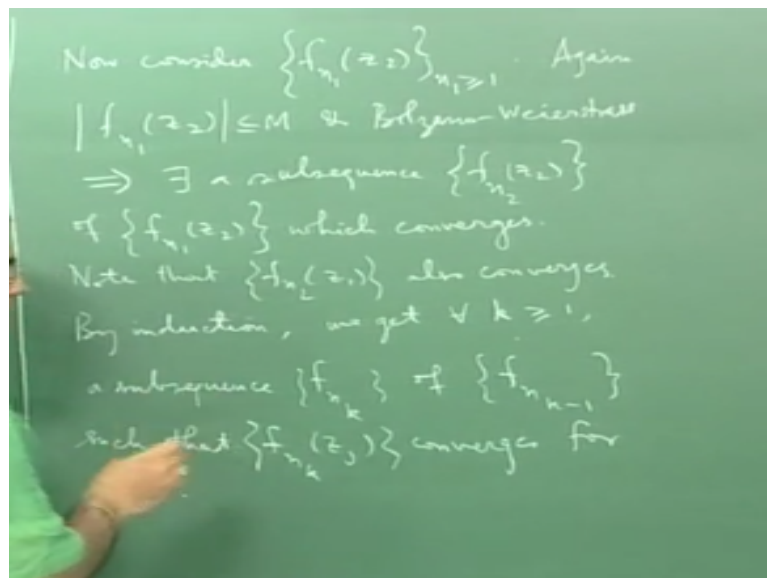 Now consider {f_{n_1}(z_2)}_{n_1≥1}. Again
|f_{n_1}(z_2)| ≤ M & Bolzano-Weierstrass
⟹ ∃ a subsequence {f_{n_2}(z_2)}
of {f_{n_1}(z_2)} which converges.
Note that {f_{n_2}(z_1)} also converges.
By induction, we get ∀ k ≥ 1,
a subsequence {f_{n_k}} of {f_{n_{k-1}}}
such that {f_{n_k}(z_j)} converges for